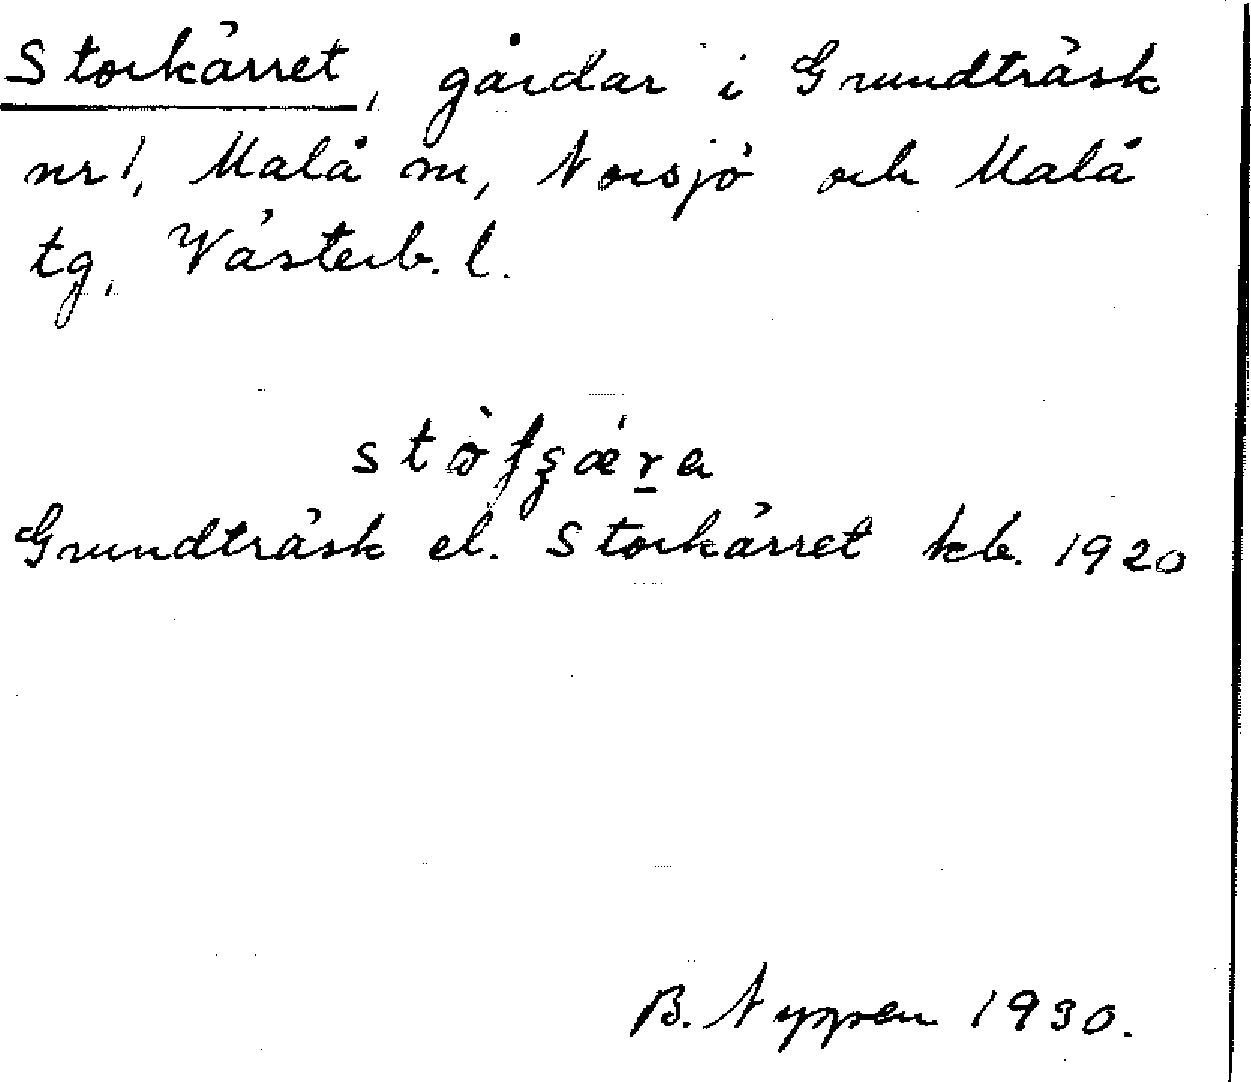 Storkärret, gårdar i Grundträsk
nr 1, Malå sn, Norsjö och Malå
tg, Västerb. l.
Grundträsk el. Storkärret kb. 1920
B. Nyppen 1930.